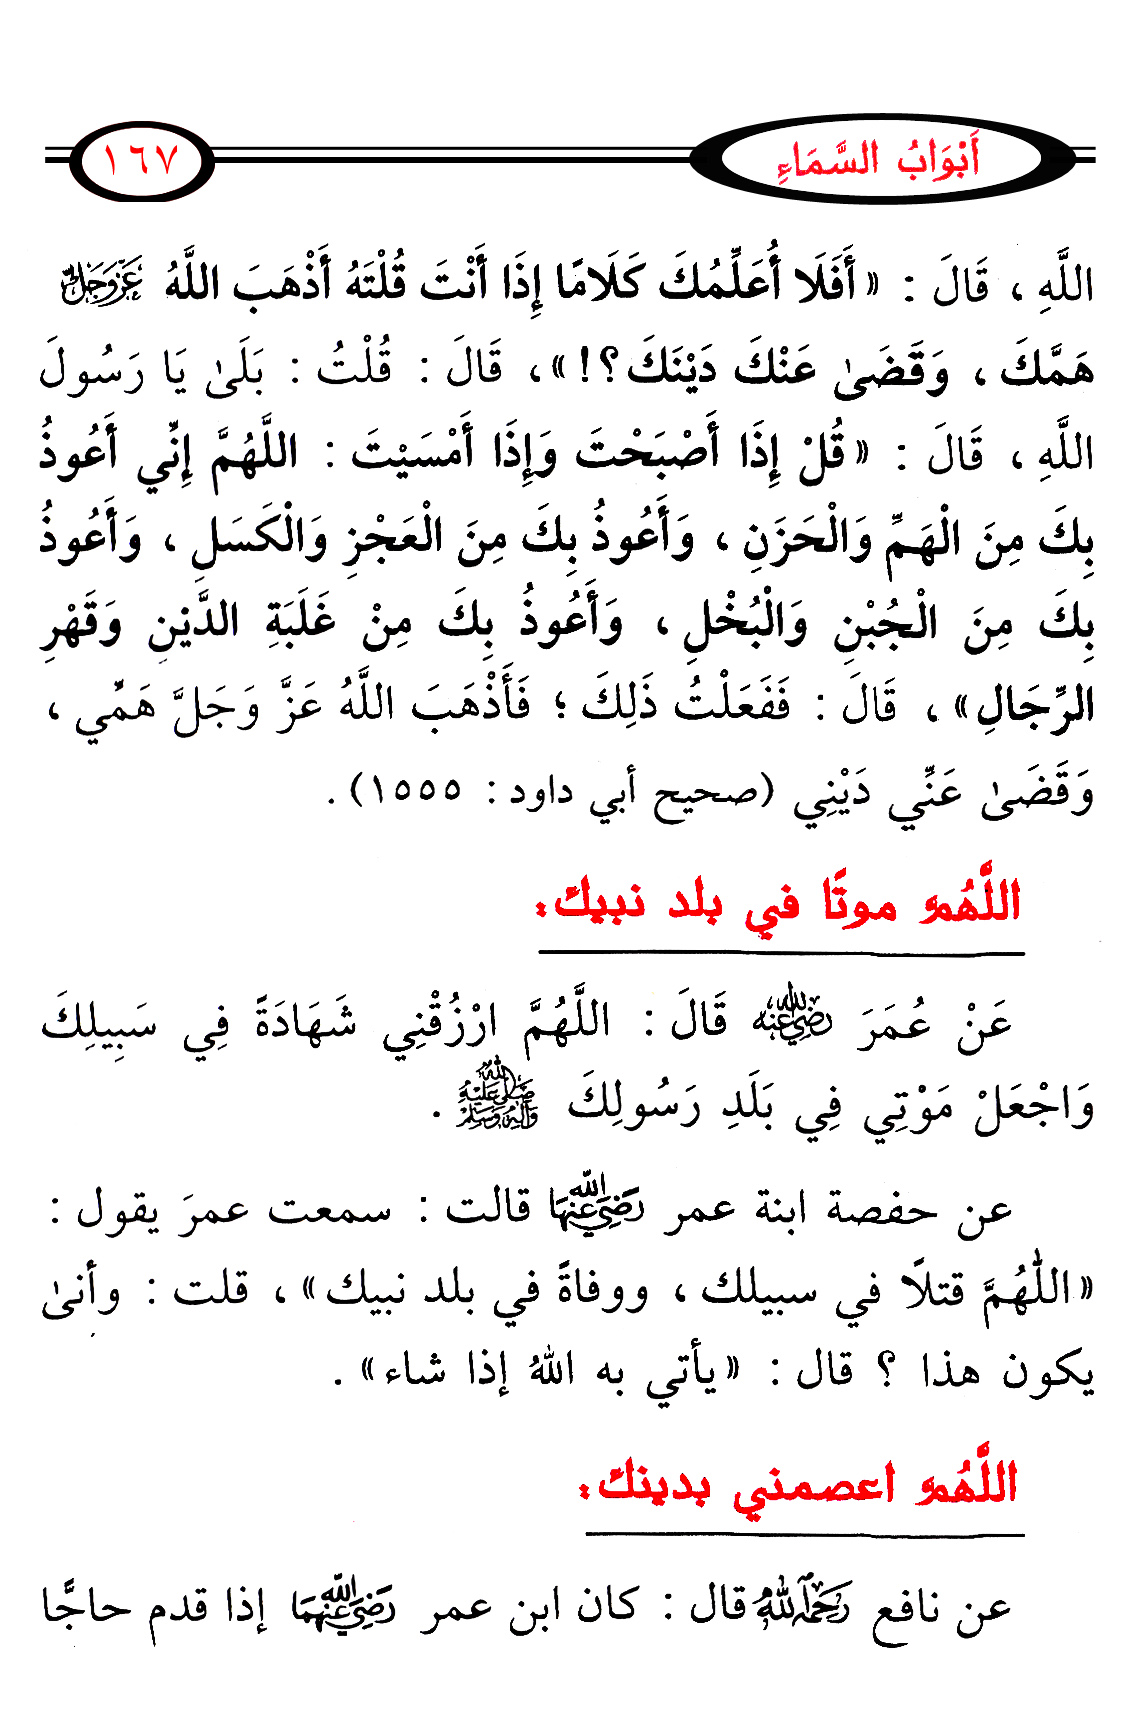 أَبْوَابُ السَّمَاءِ
١٦٧
اللَّهِ ، قَالَ : «أَفَلَا أُعَلِّمُكَ كَلَامًا إِذَا أَنْتَ قُلْتَهُ أَذْهَبَ اللَّهُ عَزَّ وَجَلَّ
هَمَّكَ ، وَقَضَىٰ عَنْكَ دَيْنَكَ ؟!» ، قَالَ : قُلْتُ : بَلَىٰ يَا رَسُولَ
اللَّهِ ، قَالَ : «قُلْ إِذَا أَصْبَحْتَ وَإِذَا أَمْسَيْتَ : اللَّهُمَّ إِنِّي أَعُوذُ
بِكَ مِنَ الْهَمِّ وَالْحَزَنِ ، وَأَعُوذُ بِكَ مِنَ الْعَجْزِ وَالْكَسَلِ ، وَأَعُوذُ
بِكَ مِنَ الْجُبْنِ وَالْبُخْلِ ، وَأَعُوذُ بِكَ مِنْ غَلَبَةِ الدَّيْنِ وَقَهْرِ
الرِّجَالِ» ، قَالَ : فَفَعَلْتُ ذَلِكَ ؛ فَأَذْهَبَ اللَّهُ عَزَّ وَجَلَّ هَمِّي ،
وَقَضَىٰ عَنِّي دَيْنِي (صحيح أبي داود : ١٥٥٥) .
اللَّهُمَّ موتًا في بلد نبيك:
عَنْ عُمَرَ رَضِيَ اللَّهُ عَنْهُ قَالَ : اللَّهُمَّ ارْزُقْنِي شَهَادَةً فِي سَبِيلِكَ
وَاجْعَلْ مَوْتِي فِي بَلَدِ رَسُولِكَ صَلَّى اللَّهُ عَلَيْهِ وَآلِهِ وَسَلَّمَ .
عن حفصة ابنة عمر رَضِيَ اللَّهُ عَنْهَا قالت : سمعت عمرَ يقول :
«اللَّهُمَّ قتلًا في سبيلك ، ووفاةً في بلد نبيك» ، قلت : وأنىٰ
يكون هذا ؟ قال : «يأتي به اللهُ إذا شاء» .
اللَّهُمَّ اعصمني بدينك:
عن نافع رَحِمَهُ اللَّهُ قال : كان ابن عمر رَضِيَ اللَّهُ عَنْهُمَا إذا قدم حاجًّا